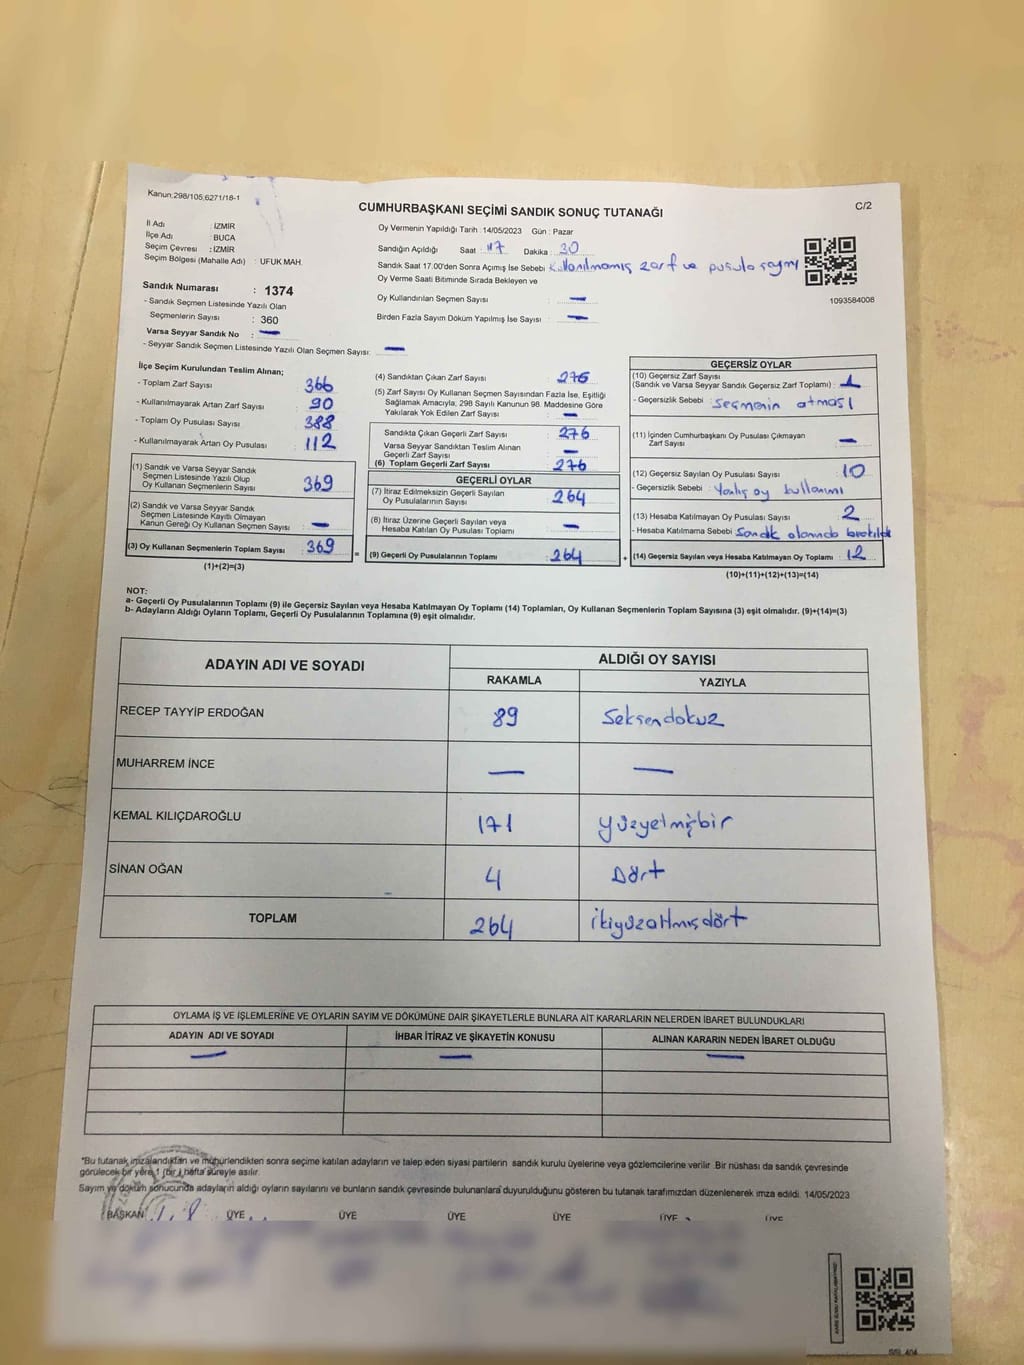 Kanun:298/105,6271/18-1
C/2
CUMHURBAŞKANI SEÇİMİ SANDIK SONUÇ TUTANAĞI
İl Adı : İZMİR
İlçe Adı : BUCA
Seçim Çevresi : İZMİR
Seçim Bölgesi (Mahalle Adı) : UFUK MAH.
Oy Vermenin Yapıldığı Tarih : 14/05/2023 Gün : Pazar
Sandığın Açıldığı Saat : 17 Dakika : 30
Sandık Saat 17.00'den Sonra Açımış İse Sebebi Kullanılmamış zarf ve pusula sayımı
Oy Verme Saati Bitiminde Sırada Bekleyen ve
Oy Kullandırılan Seçmen Sayısı : —
Birden Fazla Sayım Döküm Yapılmış İse Sayısı : —
1093584008
Sandık Numarası : 1374
- Sandık Seçmen Listesinde Yazılı Olan
Seçmenlerin Sayısı : 360
Varsa Seyyar Sandık No : —
- Seyyar Sandık Seçmen Listesinde Yazılı Olan Seçmen Sayısı: —
İlçe Seçim Kurulundan Teslim Alınan;
- Toplam Zarf Sayısı 366
- Kullanılmayarak Artan Zarf Sayısı : 90
- Toplam Oy Pusulası Sayısı : 388
- Kullanılmayarak Artan Oy Pusulası : 112
(1) Sandık ve Varsa Seyyar Sandık
Seçmen Listesinde Yazılı Olup
Oy Kullanan Seçmenlerin Sayısı : 369
(2) Sandık ve Varsa Seyyar Sandık
Seçmen Listesinde Kayıtlı Olmayan
Kanun Gereği Oy Kullanan Seçmen Sayısı : —
(3) Oy Kullanan Seçmenlerin Toplam Sayısı : 369
(1)+(2)=(3)
(4) Sandıktan Çıkan Zarf Sayısı : 276
(5) Zarf Sayısı Oy Kullanan Seçmen Sayısından Fazla İse, Eşitliği
Sağlamak Amacıyla, 298 Sayılı Kanunun 98. Maddesine Göre
Yakılarak Yok Edilen Zarf Sayısı : —
Sandıkta Çıkan Geçerli Zarf Sayısı : 276
Varsa Seyyar Sandıktan Teslim Alınan
Geçerli Zarf Sayısı : —
(6) Toplam Geçerli Zarf Sayısı : 276
GEÇERLİ OYLAR
(7) İtiraz Edilmeksizin Geçerli Sayılan
Oy Pusulalarının Sayısı : 264
(8) İtiraz Üzerine Geçerli Sayılan veya
Hesaba Katılan Oy Pusulası Toplamı : —
= (9) Geçerli Oy Pusulalarının Toplamı : 264 +
GEÇERSİZ OYLAR
(10) Geçersiz Zarf Sayısı
(Sandık ve Varsa Seyyar Sandık Geçersiz Zarf Toplamı) : 1
- Geçersizlik Sebebi : seçmenin atması
(11) İçinden Cumhurbaşkanı Oy Pusulası Çıkmayan
Zarf Sayısı : —
(12) Geçersiz Sayılan Oy Pusulası Sayısı : 10
- Geçersizlik Sebebi : Yanlış oy kullanımı
(13) Hesaba Katılmayan Oy Pusulası Sayısı : 2
- Hesaba Katılmama Sebebi sandık alanında bırakıldı
(14) Geçersiz Sayılan veya Hesaba Katılmayan Oy Toplamı : 12
(10)+(11)+(12)+(13)=(14)
NOT:
a- Geçerli Oy Pusulalarının Toplamı (9) ile Geçersiz Sayılan veya Hesaba Katılmayan Oy Toplamı (14) Toplamları, Oy Kullanan Seçmenlerin Toplam Sayısına (3) eşit olmalıdır. (9)+(14)=(3)
b- Adayların Aldığı Oyların Toplamı, Geçerli Oy Pusulalarının Toplamına (9) eşit olmalıdır.
ADAYIN ADI VE SOYADI
ALDIĞI OY SAYISI
RAKAMLA YAZIYLA
RECEP TAYYİP ERDOĞAN 89 Seksendokuz
MUHARREM İNCE — —
KEMAL KILIÇDAROĞLU 171 yüzyetmişbir
SİNAN OĞAN 4 Dört
TOPLAM 264 ikiyüzatmışdört
OYLAMA İŞ VE İŞLEMLERİNE VE OYLARIN SAYIM VE DÖKÜMÜNE DAİR ŞİKAYETLERLE BUNLARA AİT KARARLARIN NELERDEN İBARET BULUNDUKLARI
ADAYIN ADI VE SOYADI İHBAR İTİRAZ VE ŞİKAYETİN KONUSU ALINAN KARARIN NEDEN İBARET OLDUĞU
— — —
*Bu tutanak imzalandıktan ve mühürlendikten sonra seçime katılan adayların ve talep eden siyasi partilerin sandık kurulu üyelerine veya gözlemcilerine verilir. Bir nüshası da sandık çevresinde
görülecek bir yere 1 (bir) hafta süreyle asılır.
Sayım ve döküm sonucunda adayların aldığı oyların sayılarını ve bunların sandık çevresinde bulunanlara duyurulduğunu gösteren bu tutanak tarafımızdan düzenlenerek imza edildi. 14/05/2023
BAŞKAN ÜYE ÜYE ÜYE ÜYE ÜYE ÜYE